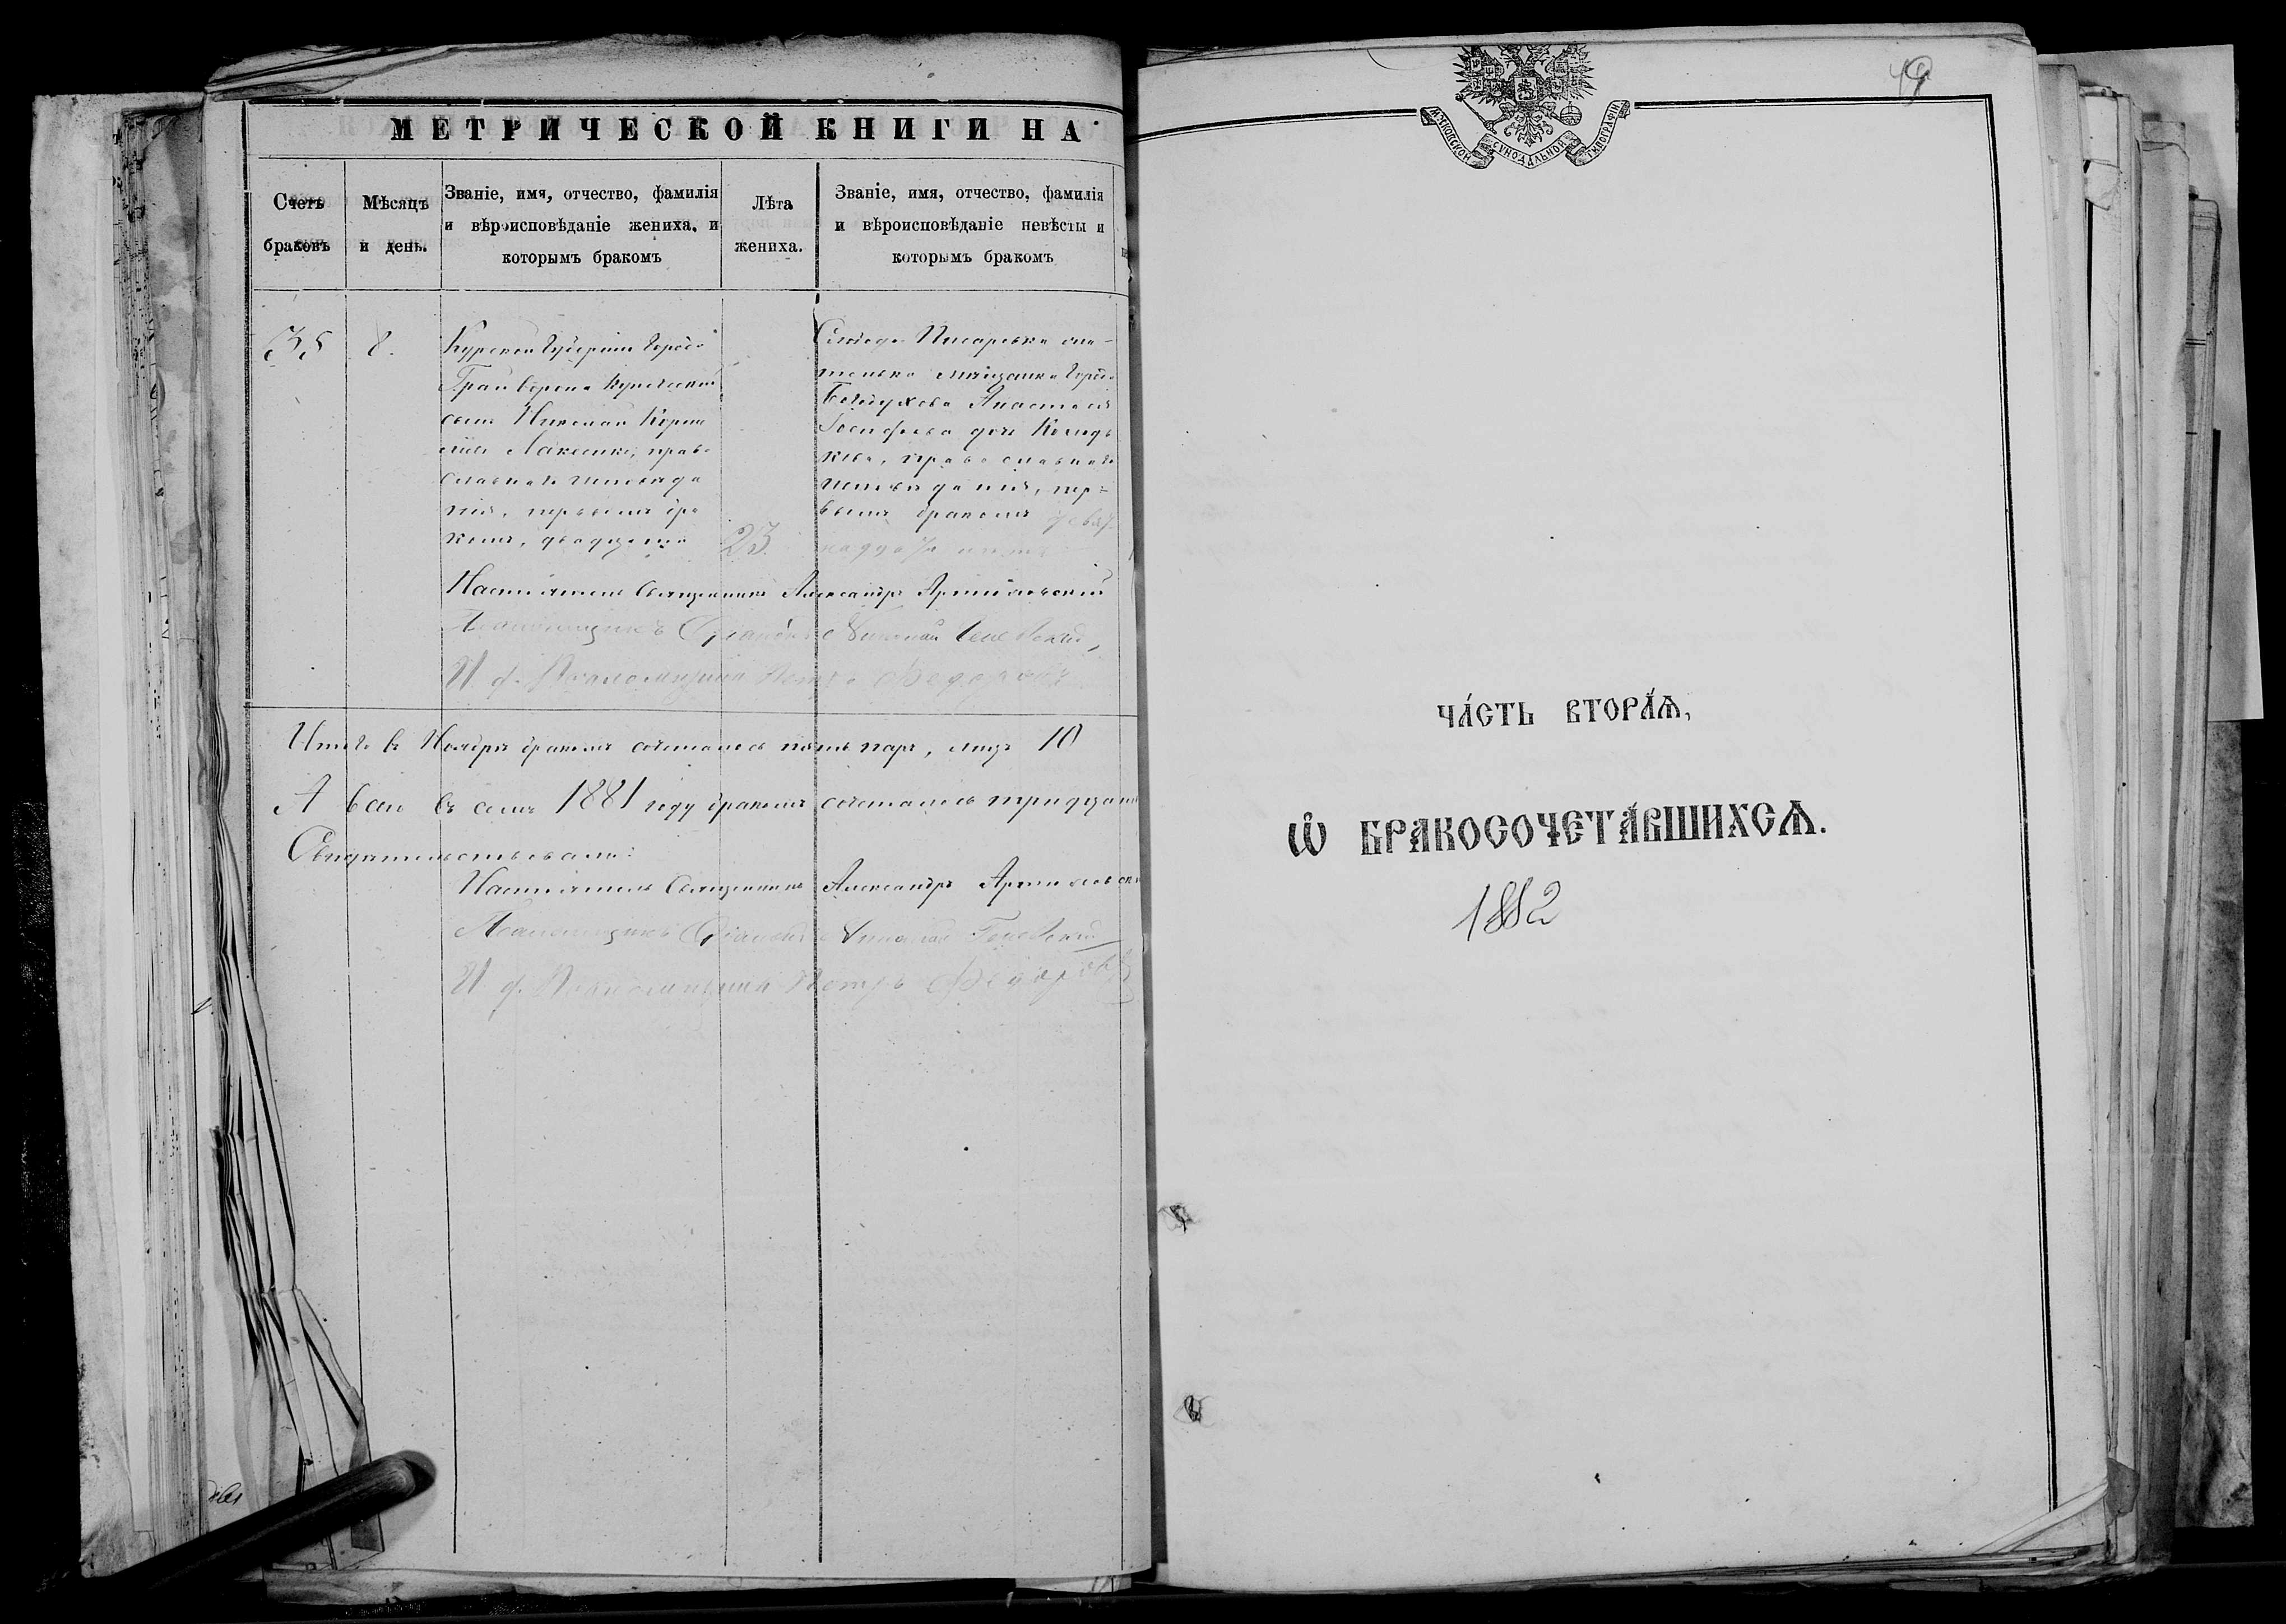 МЕТРИЧЕСКОЙ КНИГИ НА
Счетъ браковъ
Мѣсяцъ и день.
Званіе, имя, отчество, фамилія
и вѣроисповѣданіе жениха, и
которымъ бракомъ
Лѣта
жениха.
Званіе, имя, отчество, фамилія
и вѣроисповѣданіе невѣсты и
которымъ бракомъ
35
8.
Курской Губерніи Города
Грайворона Купеческій
сынъ Николай Корни
православнаго исповѣда
нія, первымъ бра
комъ,
23
Писаревка
мѣщанка Города
Богодухова Анастасія
Іосифова дочь
православнаго
исповѣданія, пер=
вымъ бракомъ
Настоятель Священникъ Александръ
Псаломщикъ Діаконъ Николай
И. д. Псаломщика Петръ Федоровъ
Итого въ Ноябрѣ бракомъ сочеталось пять паръ, лицъ 10
А всего въ семъ 1881 году бракомъ сочеталось тридцать
Свидѣтельствовали:
Настоятель Священникъ Александръ
Псаломщикъ Діаконъ Николай
И. д. Псаломщика Петръ Федоровъ
49
МОСКОВСКОЙ СѴНОДАЛЬНОЙ ТИПОГРАФІИ
ЧА́СТЬ ВТОРА́Ѧ,
Ѡ҆ БРАКОСОЧЕТА́ВШИХСѦ.
1882